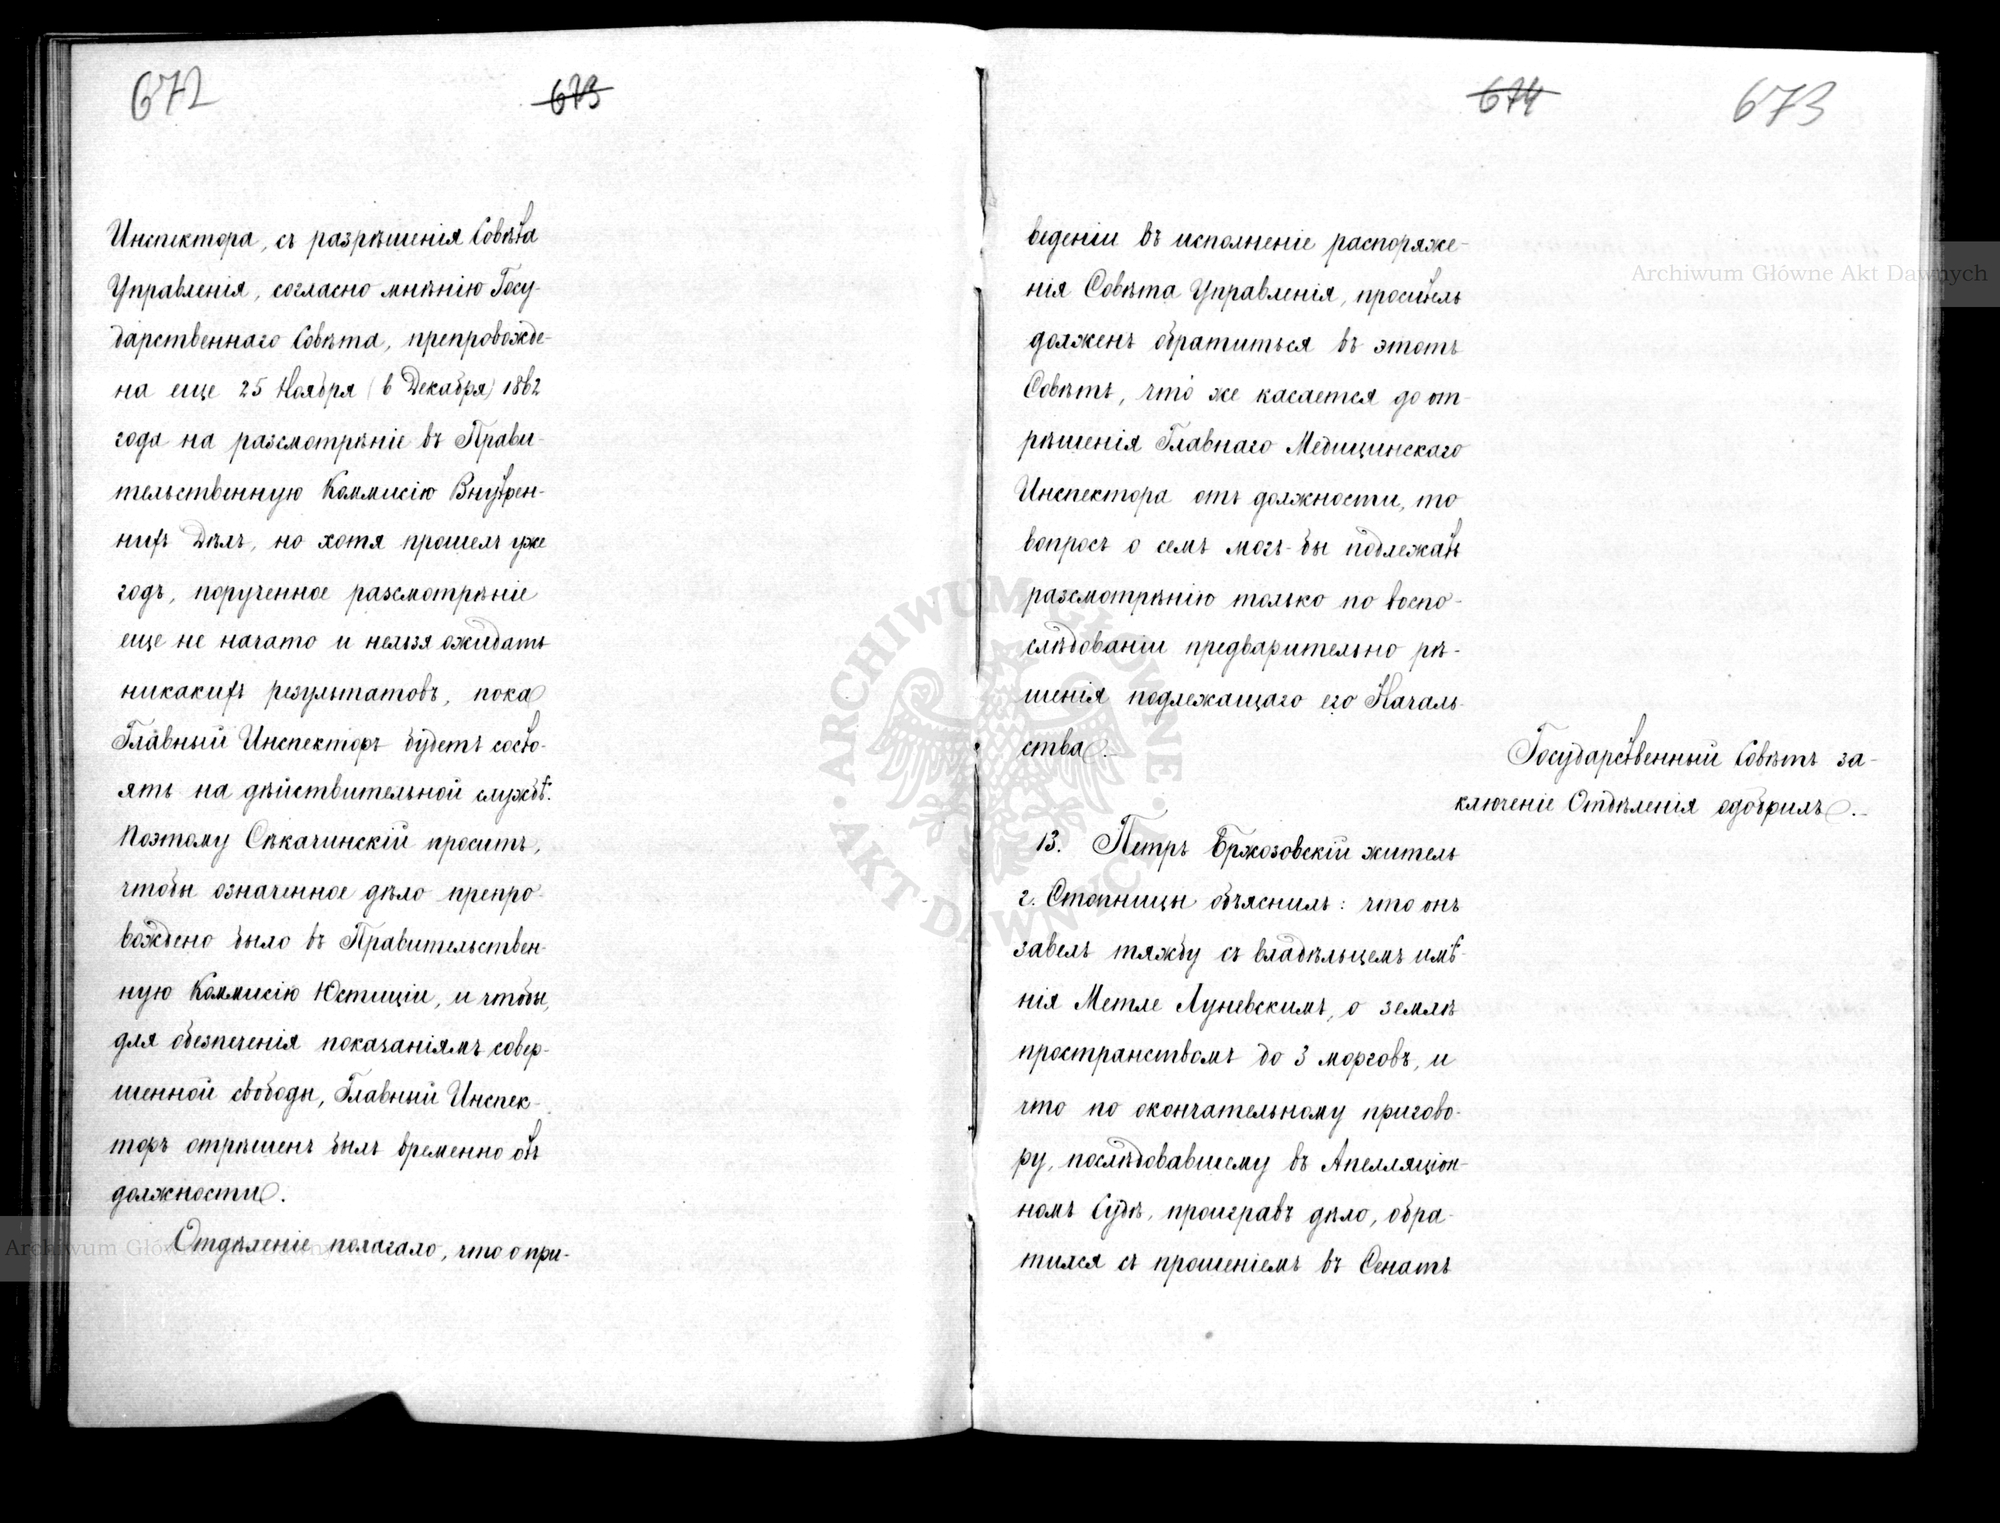 672
673
Инспектора, съ разрѣшенія Совѣта
Управленія, согласно мнѣнію Госу-
дарственнаго Совѣта, препровожде-
на еще 25 Ноября (6 Декабря) 1862
года на разсмотрѣніе въ Прави-
тельственную Коммисію Внутрен-
нихъ Дѣлъ, но хотя прошелъ уже
годъ, порученное разсмотрѣніе
еще не начато и нельзя ожидать
никакихъ результатовъ, пока
Главный Инспекторъ будетъ состо-
ять на дѣйствительной службѣ.
Поэтому Сѣкачинскій проситъ,
чтобы означенное дѣло препро-
вождено было въ Правительствен-
ную Коммисію Юстиціи, и чтобы,
для обезпеченія показаніямъ совер-
шенной свободы, Главный Инспек-
торъ отрѣшенъ былъ временно отъ
должности.
Отдѣленіе полагало, что о при-
674
673
веденіи въ исполненіе распоряже-
нія Совѣта Управленія, проситель
долженъ обратиться въ этотъ
Совѣтъ, что же касается до от-
рѣшенія Главнаго Медицинскаго
Инспектора отъ должности, то
вопросъ о семъ могъ-бы подлежать
разсмотрѣнію только по воспо-
слѣдованіи предварительно рѣ-
шенія подлежащаго его Началь-
ства.
Государственный Совѣтъ за-
ключеніе Отдѣленія одобрилъ.
13. Петръ Бржозовскій житель
г. Стопницы объяснилъ: что онъ
завелъ тяжбу съ владѣльцемъ имѣ-
нія Метле Луневскимъ, о землѣ
пространствомъ до 3 морговъ, и
что по окончательному пригово-
ру, послѣдовавшему въ Апелляціон-
номъ Судѣ, проигравъ дѣло, обра-
тился съ прошеніемъ въ Сенатъ
Archiwum Główne Akt Dawnych
ARCHIWUM GŁÓWNE AKT DAWNYCH
Archiwum Główne Akt Dawnych